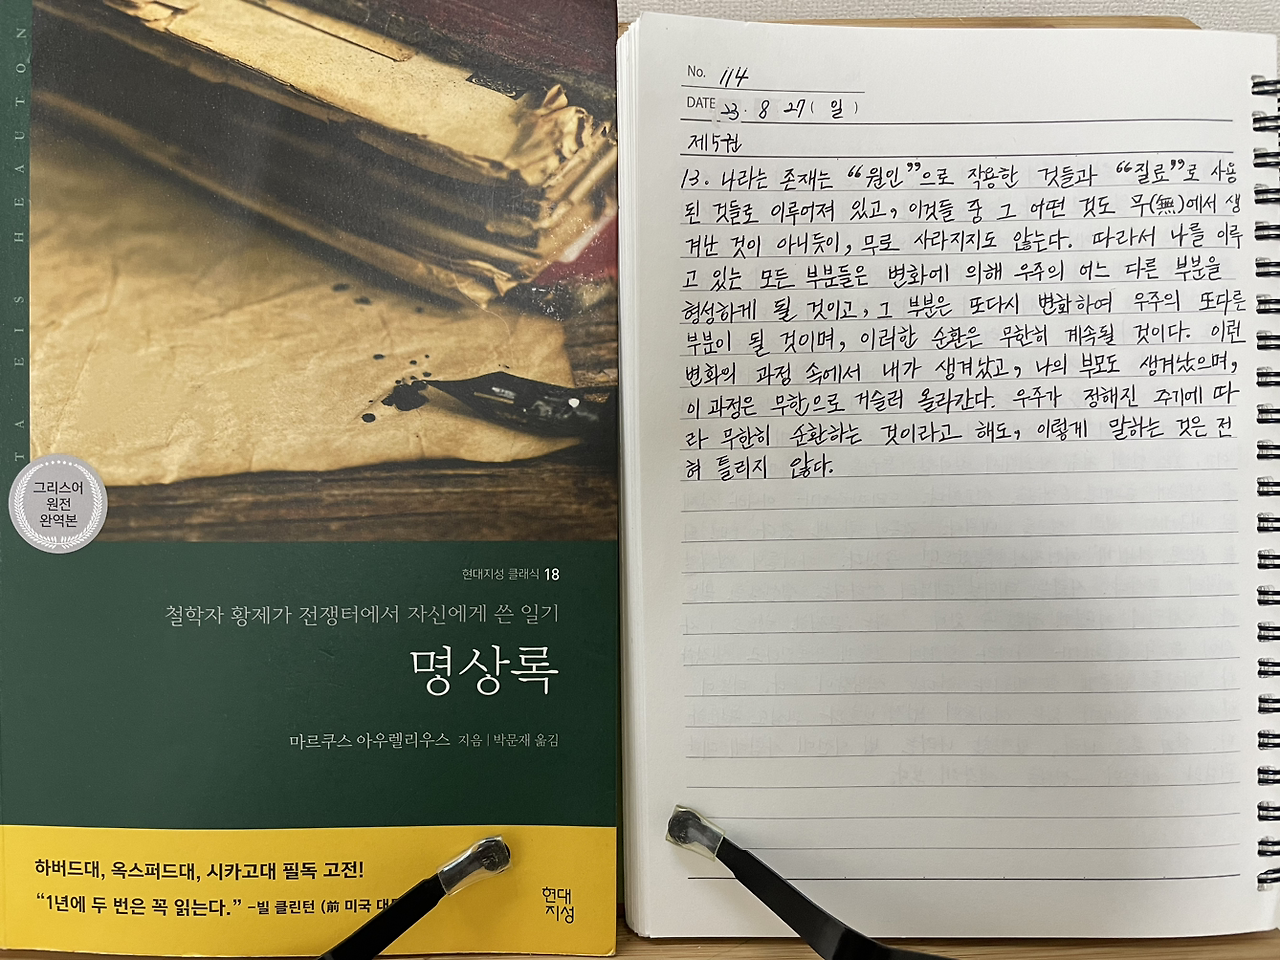 TA EIS HEAUTON
그리스어
원전
완역본
현대지성 클래식 18
철학자 황제가 전쟁터에서 자신에게 쓴 일기
명상록
마르쿠스 아우렐리우스 지음 | 박문재 옮김
하버드대, 옥스퍼드대, 시카고대 필독 고전!
“1년에 두 번은 꼭 읽는다.” –빌 클린턴 (前 미국 대
현대
지성
No. 114
DATE 23. 8 27 ( 일 )
제5권
13. 나라는 존재는 “원인”으로 작용한 것들과 “질료”로 사용
된 것들로 이루어져 있고, 이것들 중 그 어떤 것도 무(無)에서 생
겨난 것이 아니듯이, 무로 사라지지도 않는다. 따라서 나를 이루
고 있는 모든 부분들은 변화에 의해 우주의 어느 다른 부분을
형성하게 될 것이고, 그 부분은 또다시 변화하여 우주의 또다른
부분이 될 것이며, 이러한 순환은 무한히 계속될 것이다. 이런
변화의 과정 속에서 내가 생겨났고, 나의 부모도 생겨났으며,
이 과정은 무한으로 거슬러 올라간다. 우주가 정해진 주기에 따
라 무한히 순환하는 것이라고 해도, 이렇게 말하는 것은 전
혀 틀리지 않다.